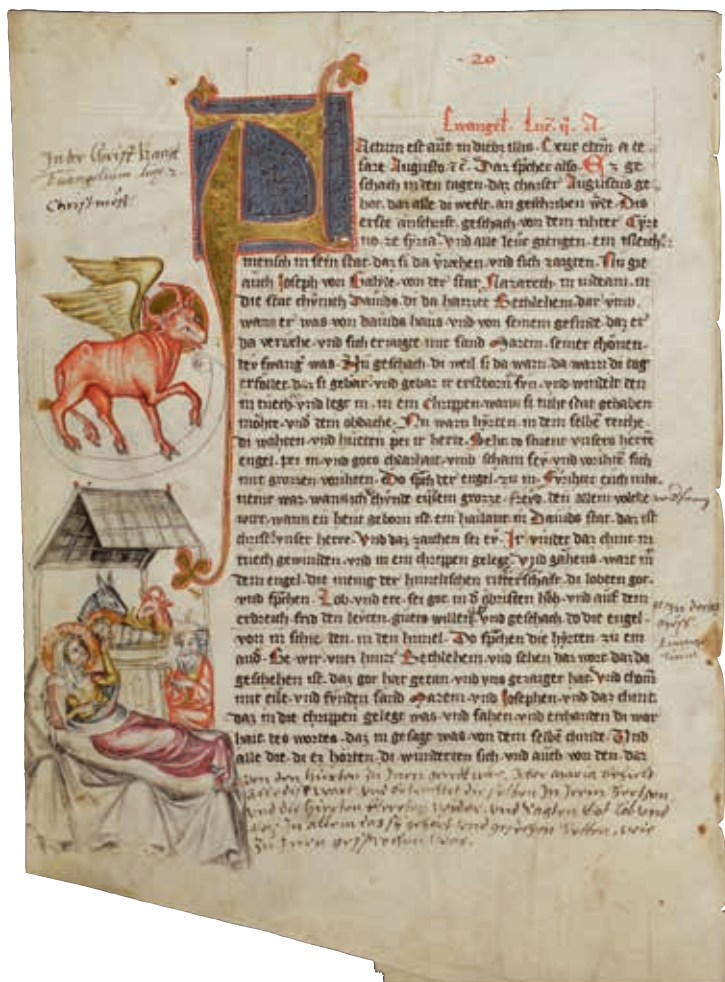 · 20 ·
Ewangel. Luc. ij. A.
In der Christ
Ewangelium luce 2
Christmess
Actum est aut in diebus illis. Exiit a ce
sare Augusto ec. Daz spchet also. Ez ge
schach in den tagen daz chaiser Augustus ge
bot. daz alle di welt. an geschriben Dis
erste anschrift. geschach von dem rihter Cyri
no. ze syria. vnd alle leute giengen. ein
mensch in sein stat. daz si da vnd sich zaigten. Nu gie
auch Joseph von Galyle. von der stat Nazareth. in iudeam. in
die stat chunich Dauids. di da haizzet Bethlehem. dar vmb
wann er was von dauids haus. vnd von seinem gesinde. daz er
da vnd sich erzaigte mit sand Marein. seiner chonen.
dev swanger was. Nu geschach. di weil si da warn. da warn di tag
erfollet. daz si gebar. vnd gebar ir erstborn syn. vnd wandelt den
in tuech. vnd legt in. in ein Chrippen. wann si niht stat gehaben
mohte. vnd dem obdache. Nu warn hyrten. in dem selben reiche.
di wahten vnd huetten per ir herte. Sehet do stuent vnsers herren
engel. per in. vnd gotes chlarhait. vmb schain sey. vnd vorhten sich
mit grozzen vorhten. Do spch der engel. zu in. Fvrhtet euch niht.
nemt war. wann ich chvnde ewh ein grozze. frevd. den allem volcke
wirt. wann eu heut geborn ist. ein hailant. in Dauids stat. daz ist
christ vnser herre. Vnd daz zaichen sei ev. Ir vindet daz chint. in
tuech gewunden. vnd in ein chrippen geleget. vnd gahens. wart mit
dem engel. die menig der himelischen ritterschaft. di lobten got.
vnd spchen. Lob. vnd ere. sei got. in d obristen hoh. vnd auf dem
erdreich. frid den leuten. guets willen. vnd geschach. do die engel.
von in fuern. den. in den himel. Do spchen die hyrten. zu ein
and. Ge wir. vntz hintz Bethlehem. vnd sehen daz wort. daz da
geschehen ist. daz got hat getan. vnd vns gezaiget hat. vnd chomen
mit eile. vnd funden sand Marein. vnd Josephen. vnd daz chint.
daz in die chrippen geleget was. vnd sahen. vnd erchanden di war
hait. des wortes. daz in gesagt was. von dem selben chinde. Vnd
alle die. di ez horten. di wunderten sich. vnd auch von den. daz
von den hirtten zu Inen geredt war. Aber maria behielt
alle dise wort. vnd die selben In Irem hertzen.
vnd die hirtten kerten wider. vnd sagten Got lob vnd
In allem das sy gehort vnd gesehen hetten. wie
zu Inen gesprochen was.